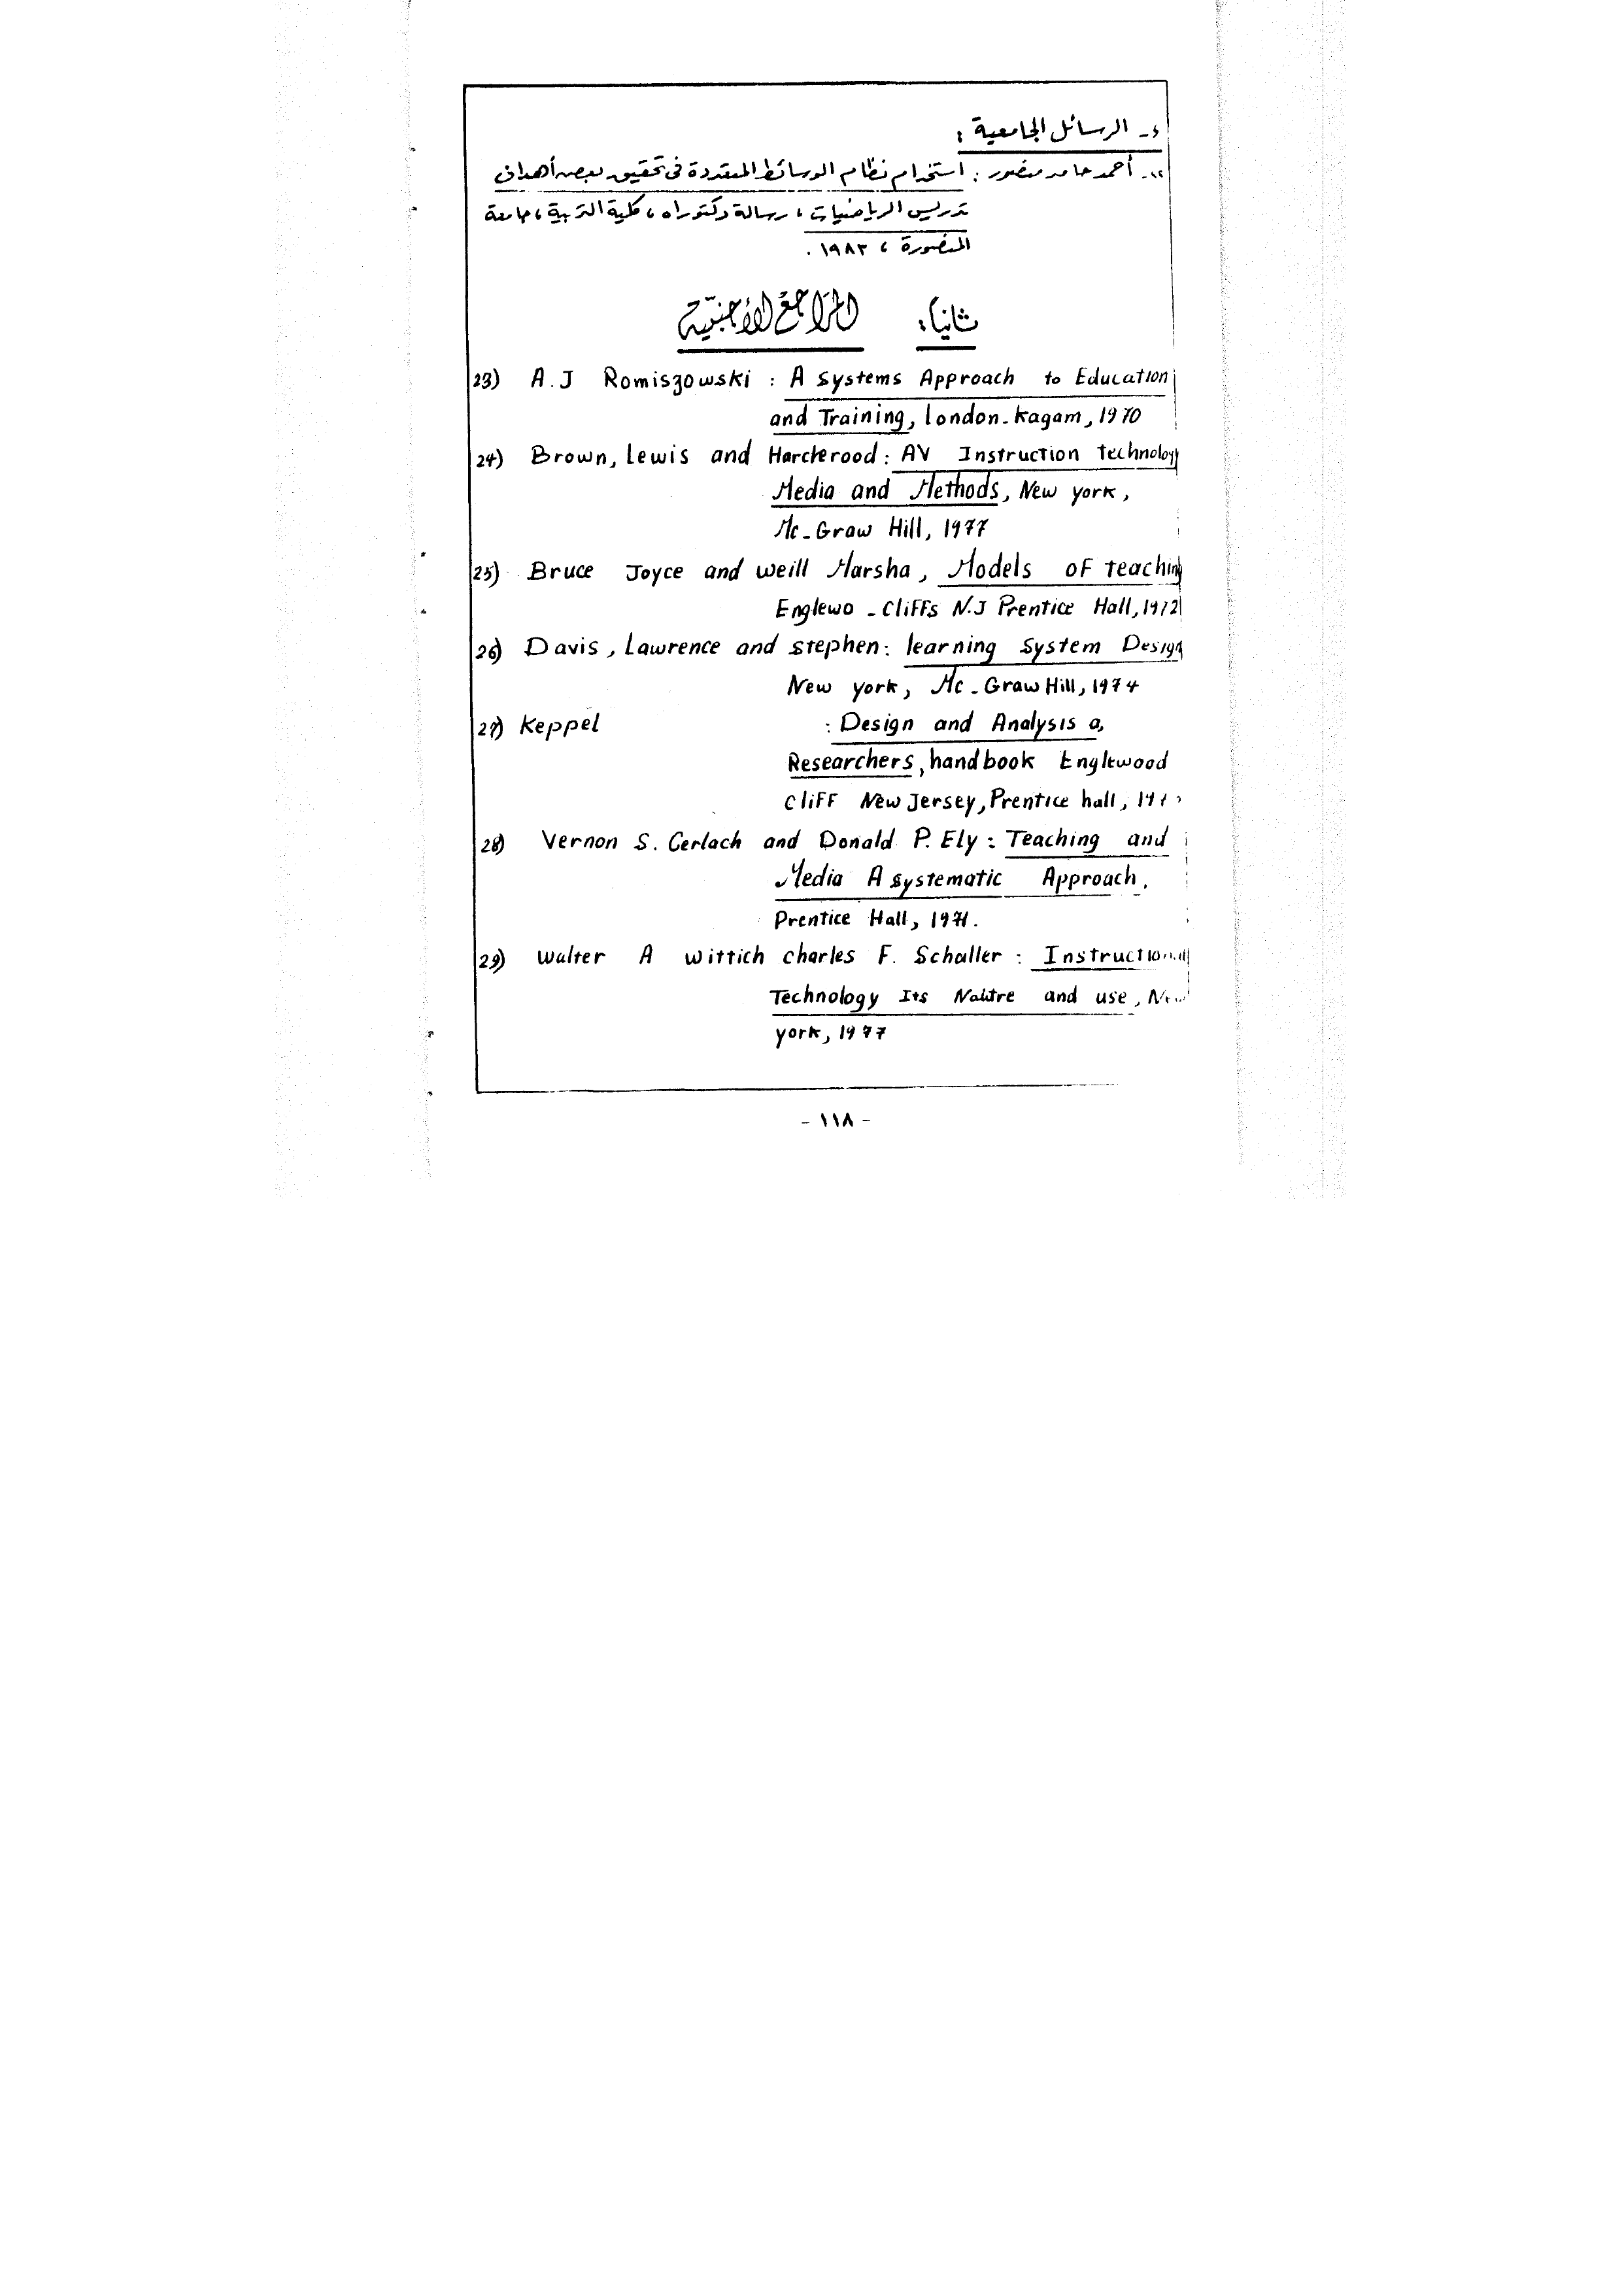 د- الرسائل الجامعية :
٢٢- أحمد حامد منصور : استخدام نظام الوسائط المتعددة فى تحقيق بعض أهداف
تدريس الرياضيات ، رسالة دكتوراه ، كلية التربية ، جامعة
المنصورة ، ١٩٨٣ .
ثانيا: المراجع الأجنبية
23) A.J Romiszowski : A Systems Approach to Education
and Training, london-kagam, 1970
24) Brown, Lewis and Harclerood : AV Instruction technology
Media and Methods, New york,
Mc-Graw Hill, 1977
25) Bruce Joyce and weill Marsha, Models of teaching
Englewo - Cliffs N.J Prentice Hall, 1972
26) Davis, Lawrence and stephen: learning System Design
New york, Mc-Graw Hill, 1974
27) Keppel : Design and Analysis a,
Researchers, handbook Englewood
Cliff New Jersey, Prentice hall,
28) Vernon S. Gerlach and Donald P. Ely : Teaching and
Media A systematic Approach,
Prentice Hall, 1971.
29) Walter A Wittich charles F. Schuller : Instructional
Technology Its Nature and use, New
york, 1977
- ١١٨ -